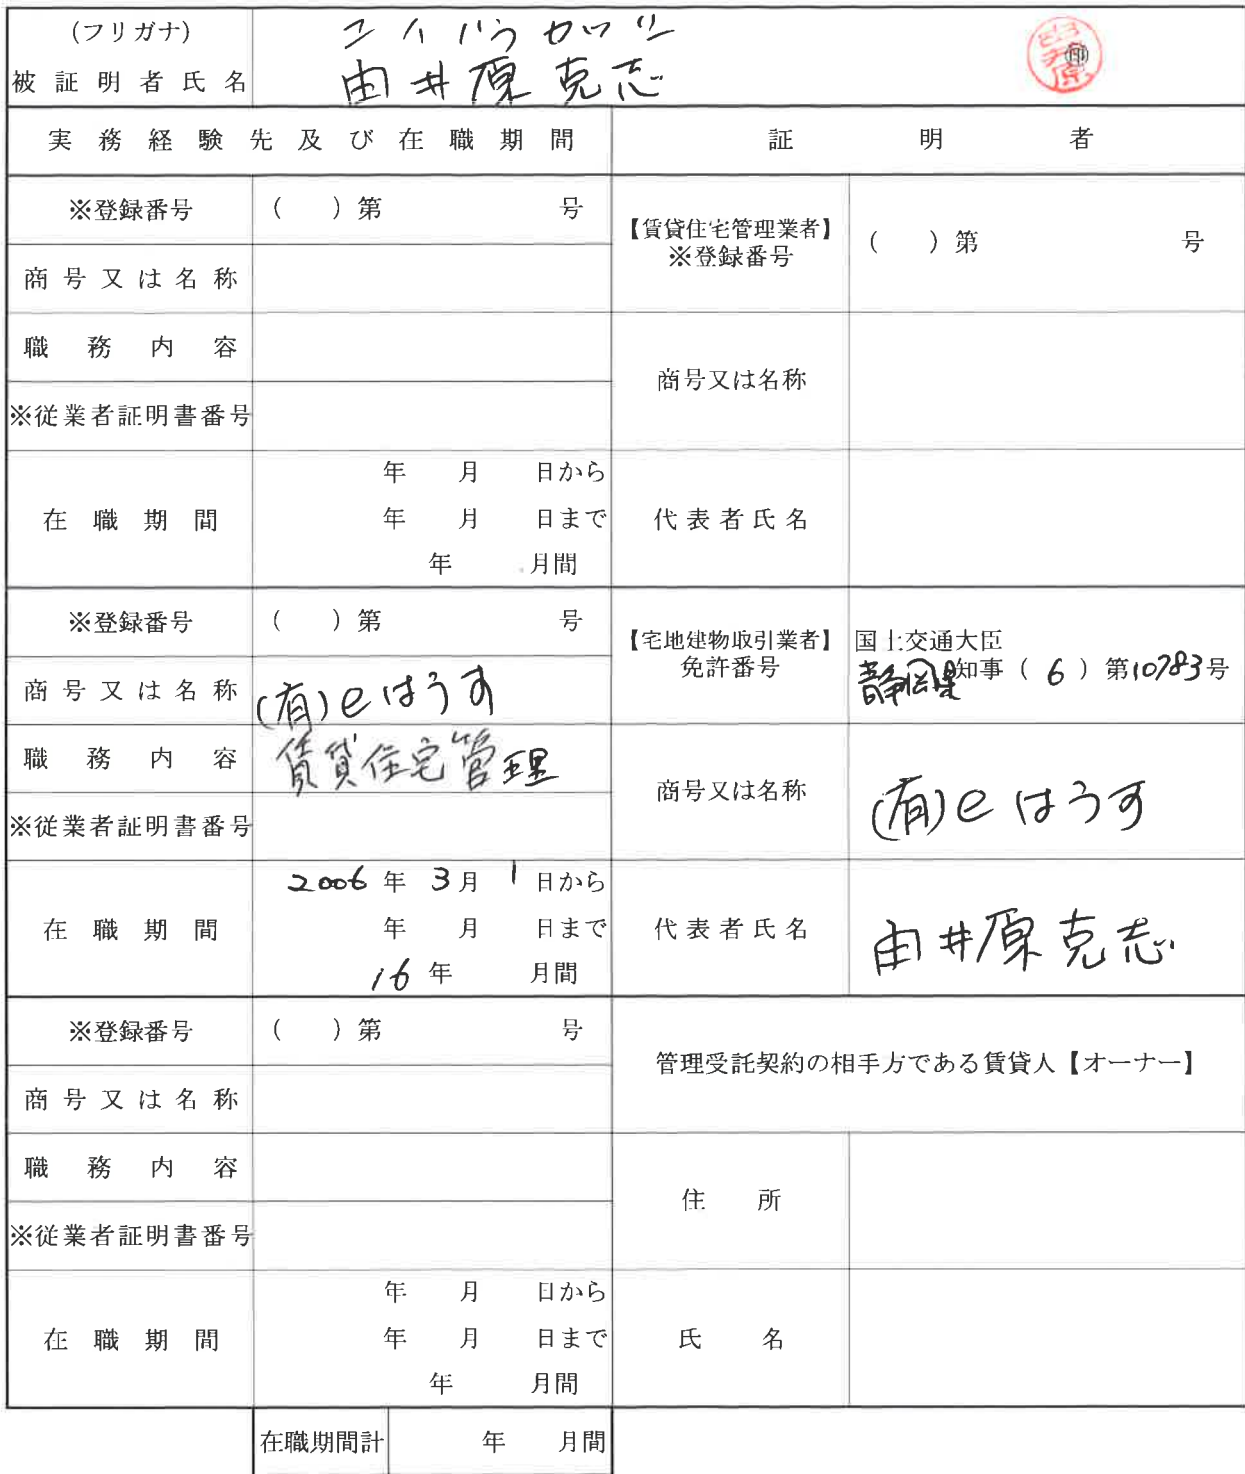 (フリガナ) ユイバラカツシ
被証明者氏名 由井原克志 ㊞
実務経験先及び在職期間 証明者
※登録番号 ( ) 第 号
商号又は名称
職務内容
※従業者証明書番号
在職期間
年 月 日から
年 月 日まで
年 月間
【賃貸住宅管理業者】
※登録番号
( ) 第 号
商号又は名称
代表者氏名
※登録番号 ( ) 第 号
商号又は名称 (有)eはうす
職務内容 賃貸住宅管理
※従業者証明書番号
在職期間
2006 年 3 月 1 日から
年 月 日まで
16 年 月間
【宅地建物取引業者】
免許番号
国土交通大臣
静岡県知事 ( 6 ) 第10783号
商号又は名称 (有)eはうす
代表者氏名 由井原克志
※登録番号 ( ) 第 号
商号又は名称
職務内容
※従業者証明書番号
在職期間
年 月 日から
年 月 日まで
年 月間
管理受託契約の相手方である賃貸人【オーナー】
住所
氏名
在職期間計 年 月間